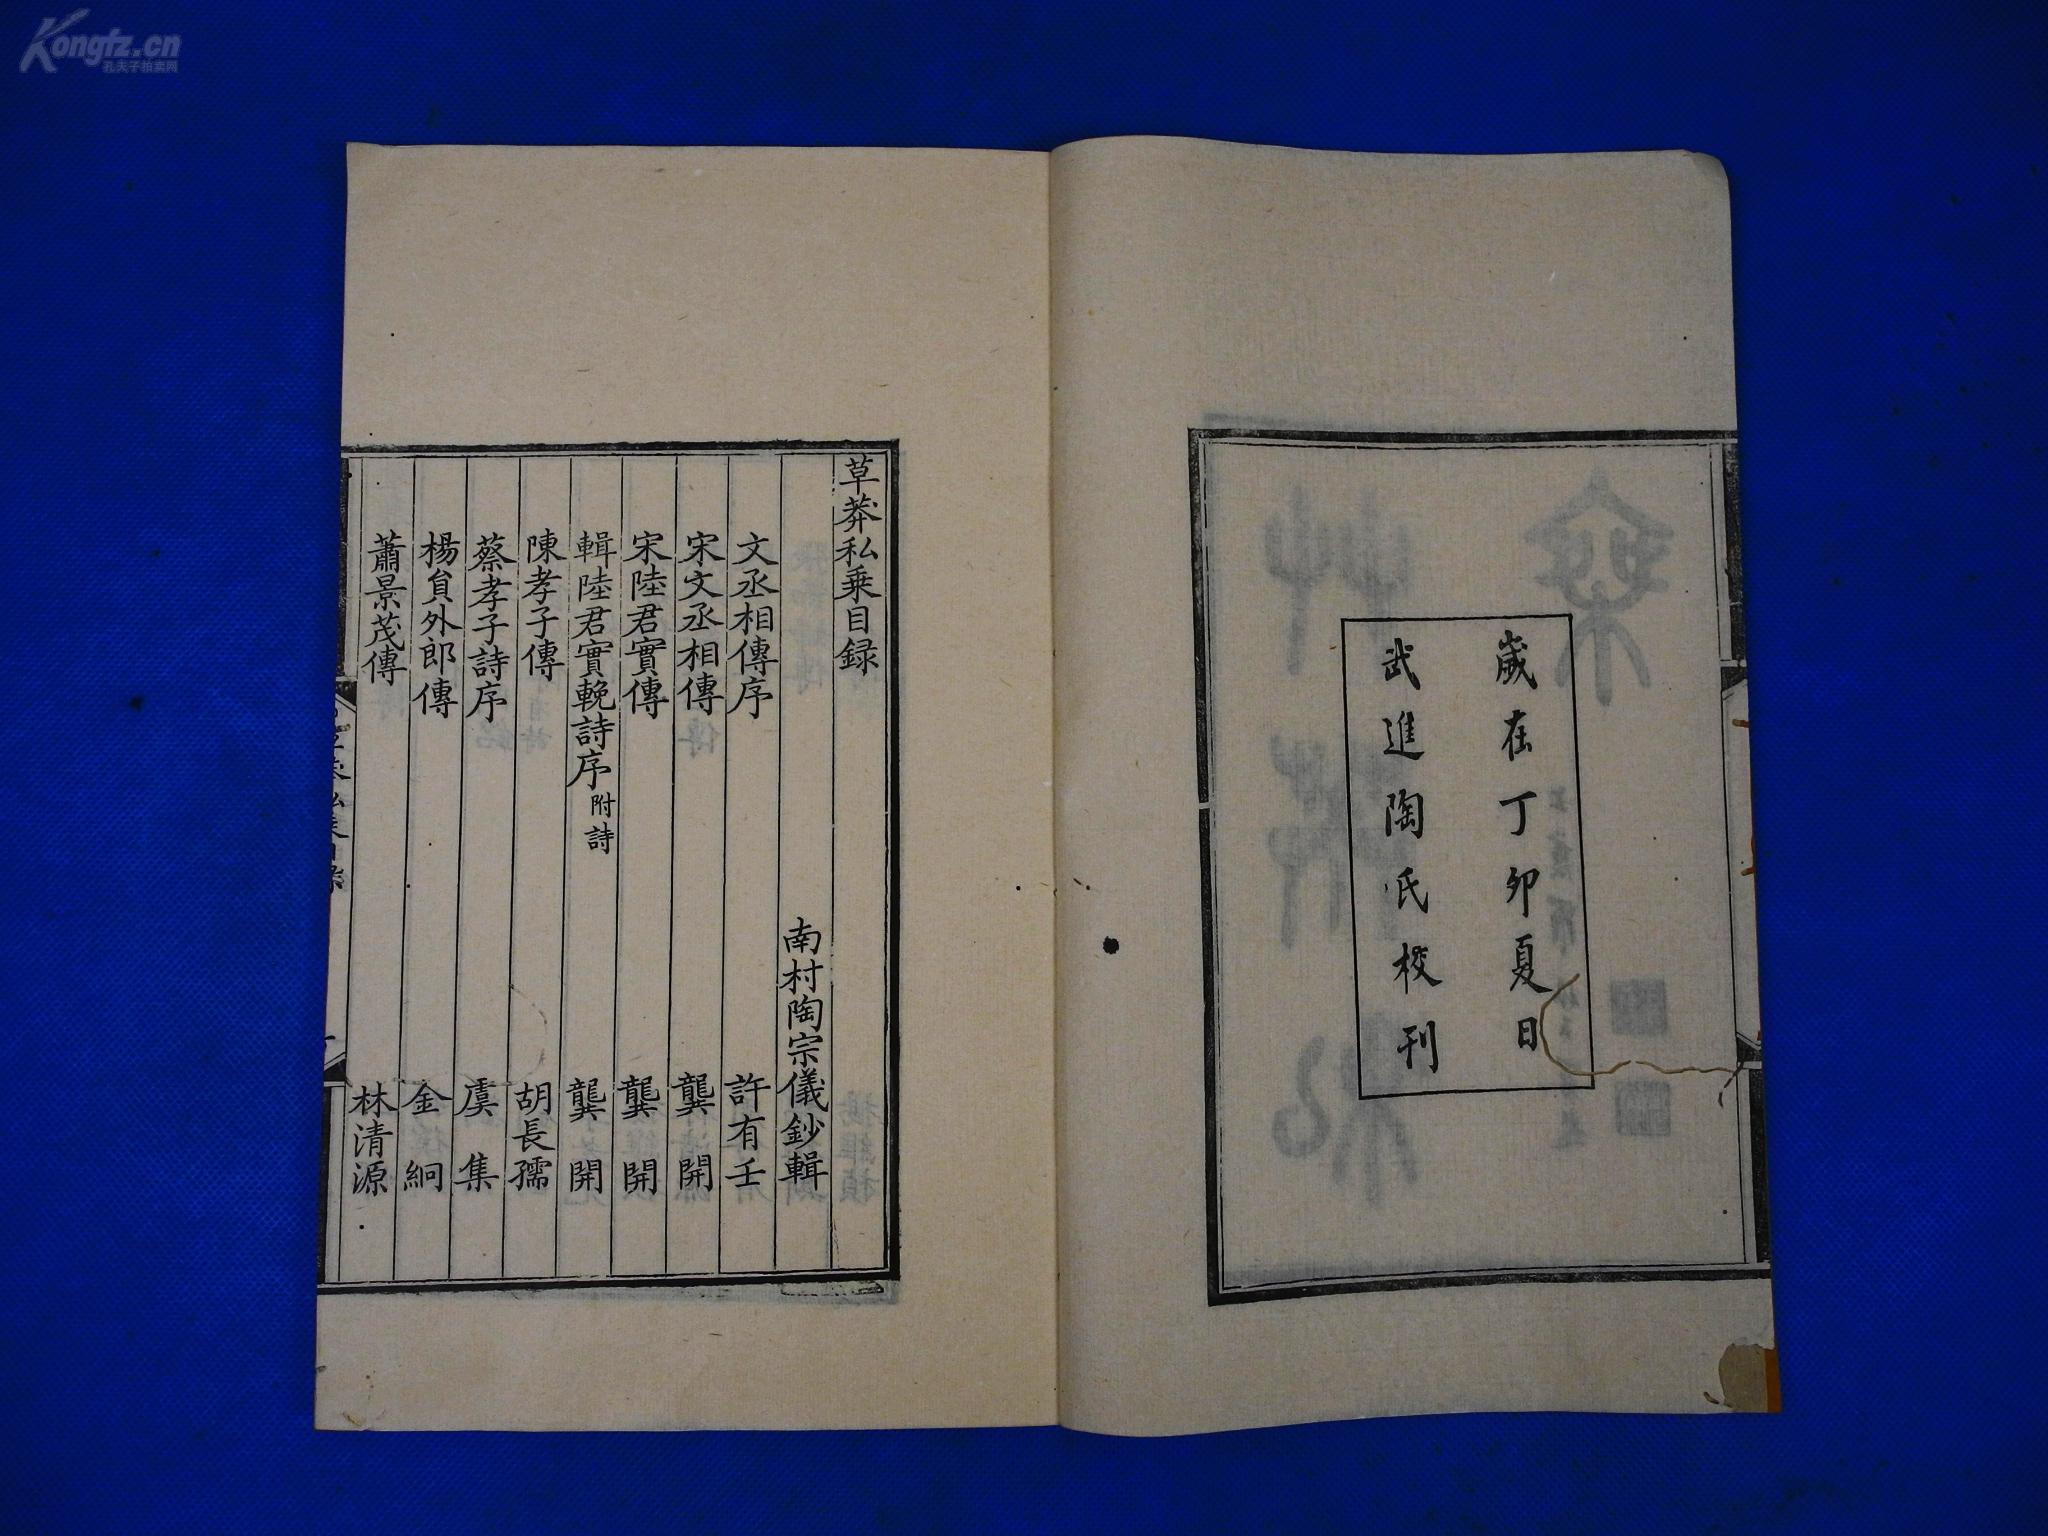 Kongfz.cn
孔夫子拍卖网
歲在丁卯夏日
武進陶氏校刊
草莽私乘目録
南村陶宗儀鈔輯
文丞相傳序 許有壬
宋文丞相傳 龔開
宋陸君實傳 龔開
輯陸君實輓詩序附詩 龔開
陳孝子傳 胡長孺
蔡孝子詩序 虞集
楊員外郎傳 金絅
蕭景茂傳 林清源